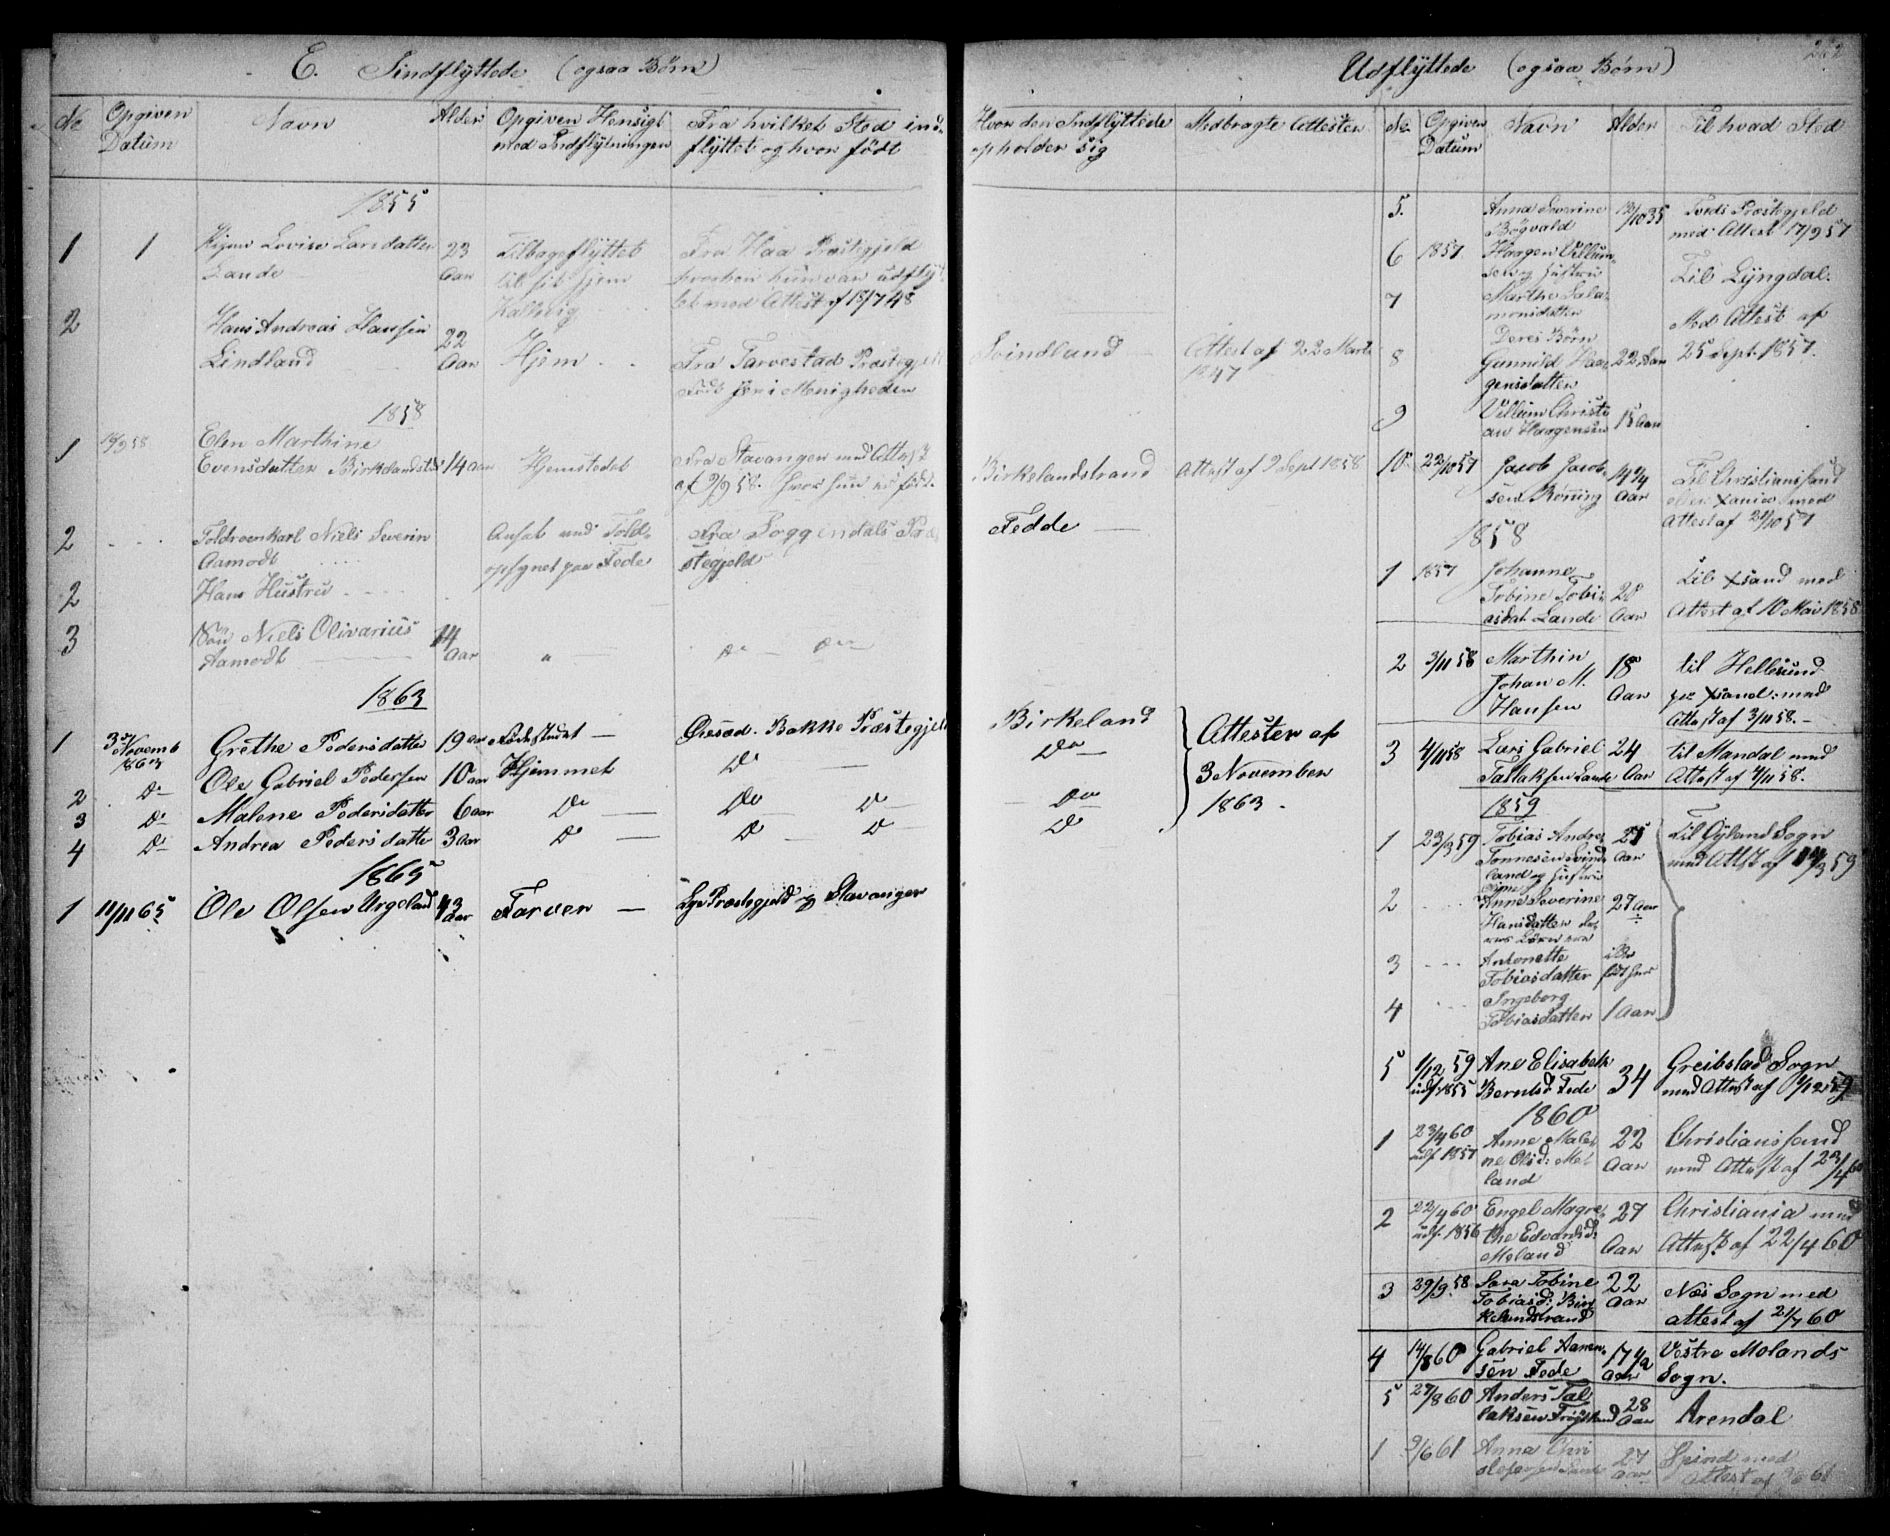 E. Indflyttede (ogsaa Børn)
No
Opgiven Datum
Navn
Alder
Opgiven Hensigt med Indflytningen
Fra hvilket Sted indflyttet og hvor født
Hvor den Indflyttede opholder sig
Medbragte Attester
1855
1 1 Lovise Larsdatter Lande 23 Aar Tilbageflyttet til sit Hjem Fra Haa Præstegjeld hvorhen hun var udflyttet med Attest af 18/7 48
2 Hans Andreas Hansen Lindland 22 Aar Hjem Fra Tarvestad Præstegjeld Født her i Menigheden Svindland Attest af 22 Marts 1847
1858
1 Elen Marthine Evensdatter Birkelandstrd 14 Aar Hjemstedet Fra Stavanger med Attest af 2/9 58. hvor hun er født. Birkelandstrand Attest af 2 Sept 1858
2 Toldroerskarl Niels Severin Aamodt Ansat ved Toldopsynet paa Fede Fra Soggendals Præstegjeld Fedde
2 Hans Hustru
3 Søn Niels Olivarius Aamodt 14 Aar " Do Do
1863
1 3die Novemb 1863 Grethe Pedersdatter 19 aar Fødestedet Øiesad. Bakke Præstegjeld Birkeland Attester af 3 November 1863.
2 Do Ole Gabriel Pedersen 10 aar Hjemmet Do Do
3 Do Malene Pedersdatter 6 aar Do Do Do Do
4 Do Andrea Pedersdatter 3 Aar Do Do Do Do
1865
1 11/11 65 Ole Olsen Urgeland 43 Aar Farver Lye Præstegjeld og Stavanger
Udflyttede (ogsaa Børn)
262
No
Opgiven Datum
Navn
Alder
Til hvad Sted
5. Anna Severine Bøgvald 13/10 35 Tveds Præstegjeld med Attest 17/9 57
6 1857 Haagen Villumsen og Hustru Til Lyngdal.
7 Marthe Salamonsdatter Med Attest af 25 Sept. 1857.
Deres Børn
8 Gunnild Haagensdatter 22 Aar
9 Villum Christian Haagensen 15 Aar
10 22/10 57 Jacob Jacobsen Rønning 14 3/4 Aar Til Christianssand eller Xania med Attest af 24/10 57
1858
1 1857 Johanne Tobine Tobiasdat. Lande 20 Aar Til Xsand med Attest af 10 Mai 1858
2 3/11 58 Marthin Johan M. Hansen 18 Aar til Hellesund pr Xsand: med Attest af 3/11 58.
3 4/11 58 Lars Gabriel Tallaksen Lande 24 Aar til Mandal med Attest af 4/11 58.
1859
1 23/3 59 Tobias Andreas Tønnesen Svindland og Hustru 25 Aar Til Gyland Sogn med Attest af 14/3 59
2 Anne Severine Hansdatter deres Børn 27 Aar
3 Antonette Tobiasdatter født her
4 Ingeborg Tobiasdatter 1 Aar
5 1/12 59 udf: 1855 Ane Elisabeth Berntsd. Fede 34 Greibstad Sogn med Attest af 1/12 59
1860
1 23/4 60 udf. 1857 Anne Malene Olsd: Meland 22 Aar Christianssand med Attest af 23/4 60
2 22/4 60 udf. 1856 Engel Magrethe Edvardsd: Meland 27 Aar Christiania med Attest af 22/4 60
3 29/9 58 Sara Tobine Tobiasd: Birkelandstrand 22 Aar Næs Sogn med attest af 21/7 60
4 14/8 60 Gabriel Aanensen Fede 17 1/2 aar Vestre Molands Sogn.
5 27/8 60 Anders Tallaksen 28 Aar Arendal
1 2/6 61 Anna 27 aar Spind med Attest af